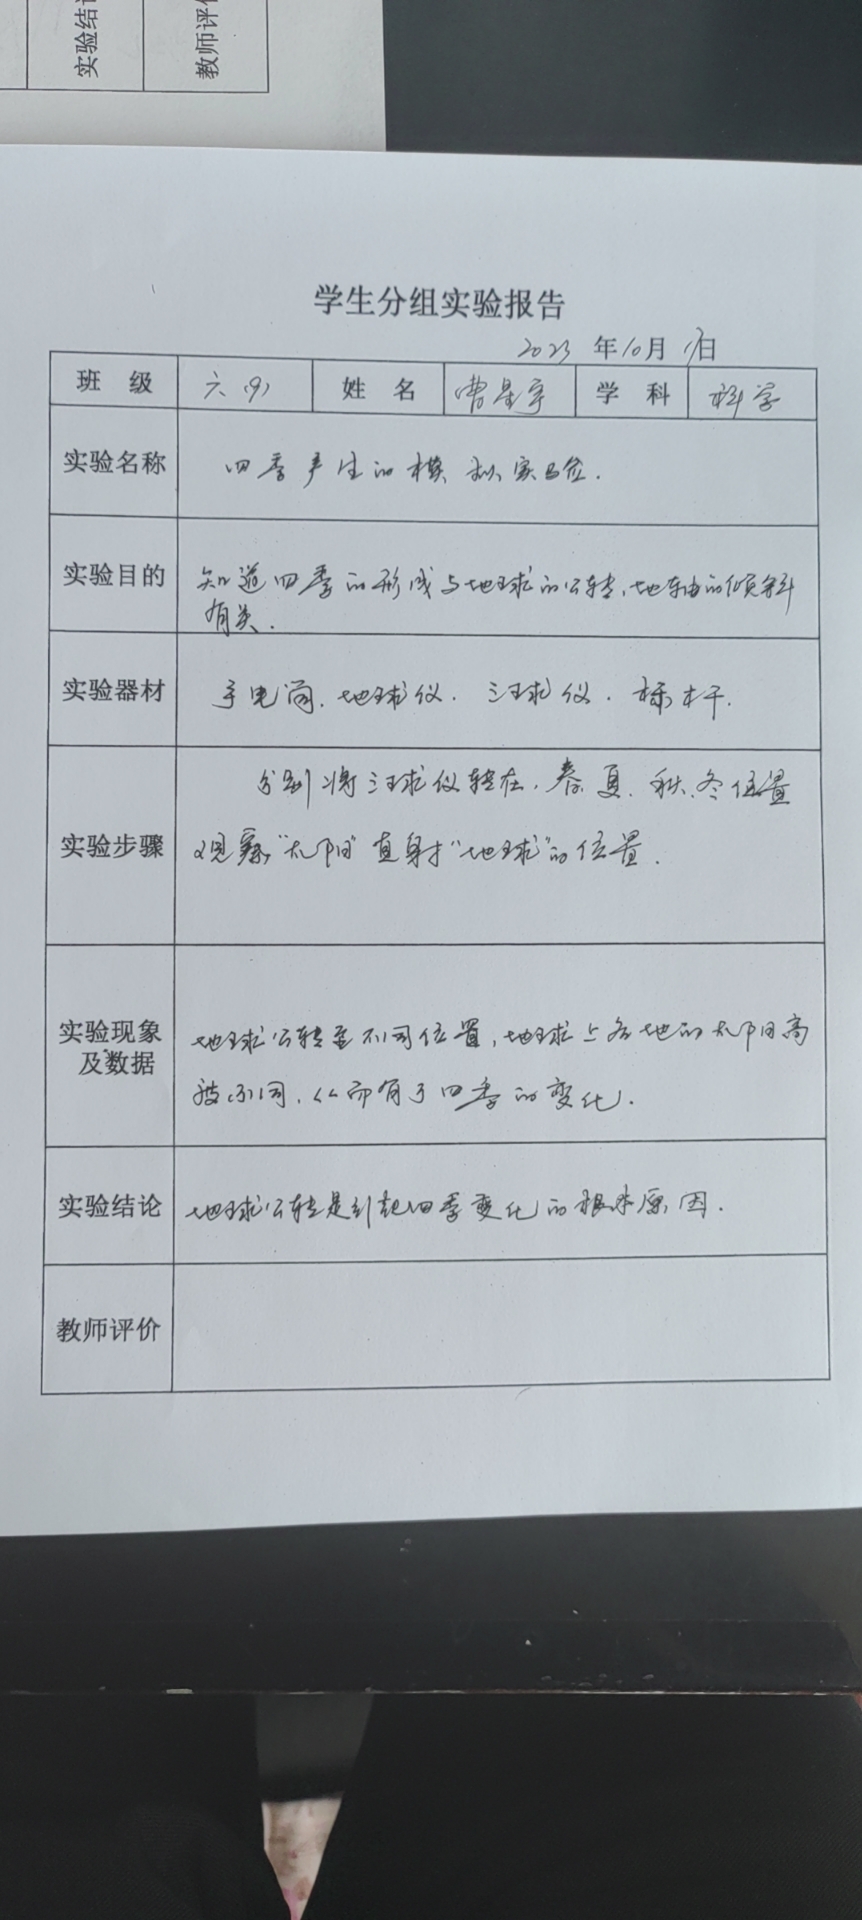 实验结论
教师评价
学生分组实验报告
2023 年10月17日
班 级 六(9) 姓 名 曹星宇 学 科 科学
实验名称 四季产生的模拟实验.
实验目的 知道四季的形成与地球的公转,地轴的倾斜
有关.
实验器材 手电筒.地球仪.三球仪.标杆.
分别将三球仪转在,春.夏.秋.冬位置
实验步骤 观察"太阳"直射"地球"的位置.
实验现象
及数据
地球公转至不同位置,地球上各地的太阳高
度不同,从而有了四季的变化.
实验结论 地球公转是引起四季变化的根本原因.
教师评价